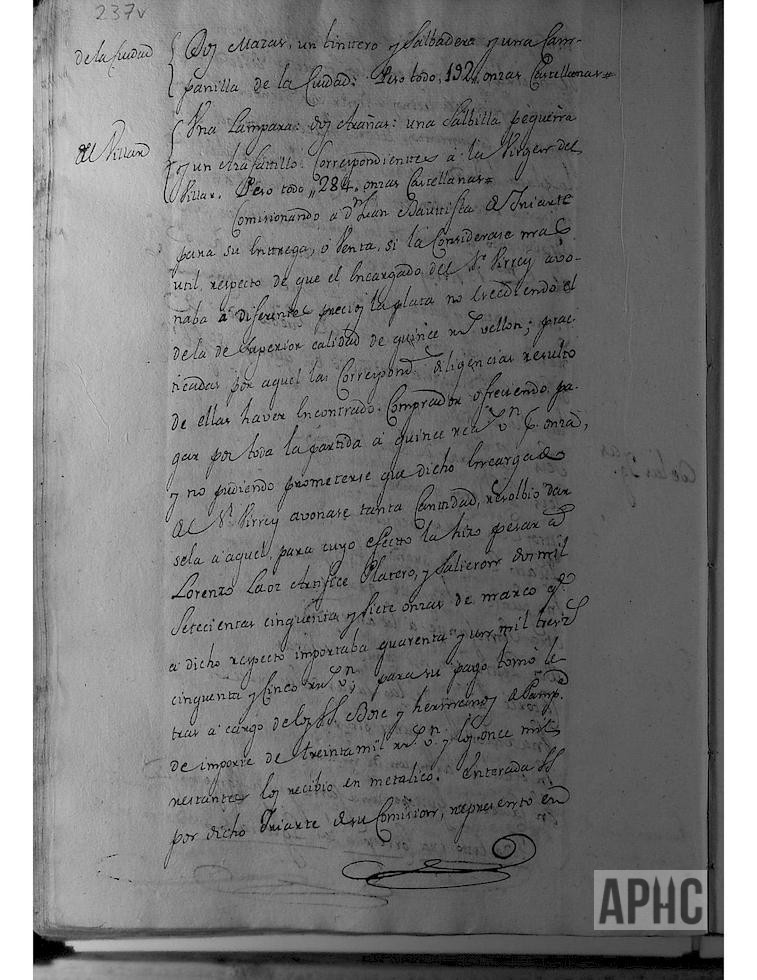 237v
de la Ciudad
Dos Mazas, un tintero y Salbadera y una Cam-
panilla de la Ciudad: Peso todo, 192, onzas Castellanas=
del Villar
Una Lampara: dos Arañas: una Salbilla pequeña
y un Correspondientes a la Virgen del
Villar. Peso todo, 284, onzas Castellanas=
Comisionando a Dn Juan Bautista de Iriarte
para su entrega, o Venta, si la Considerase mas
util, respecto de que el Encargado del Sr. Virrey abo-
naba a diferentes precios la plata no excediendo el
dela de Superior calidad de quince rs vellon; prac-
ticadas por aquel las Correspondtes diligencias resulto
de ellas haver encontrado Comprador ofreciendo pa-
gar por toda la partida a quince reas vn p. onza,
y no pudiendo prometerse que dicho Encargado
del Sr. Virrey avonase tanta Cantidad, resolbio dar
sela a aquel, para cuyo efecto la hizo pesar a
Lorenzo Laoz Artifice Platero, y salieron dos mil
Setecientas cinquenta y siete onzas de marco qe
a dicho respecto importaba quarenta y un mil trescs
cinquenta y Cinco rrs vn; para su pago tomó le
tras a cargo de los SS. Borc y hermanos de Pampa
de importe de treinta mil rrs vn y los once mil
restantes los recibio en metalico. Enterada SS
por dicho Iriarte de su Comision, represento en
APHC